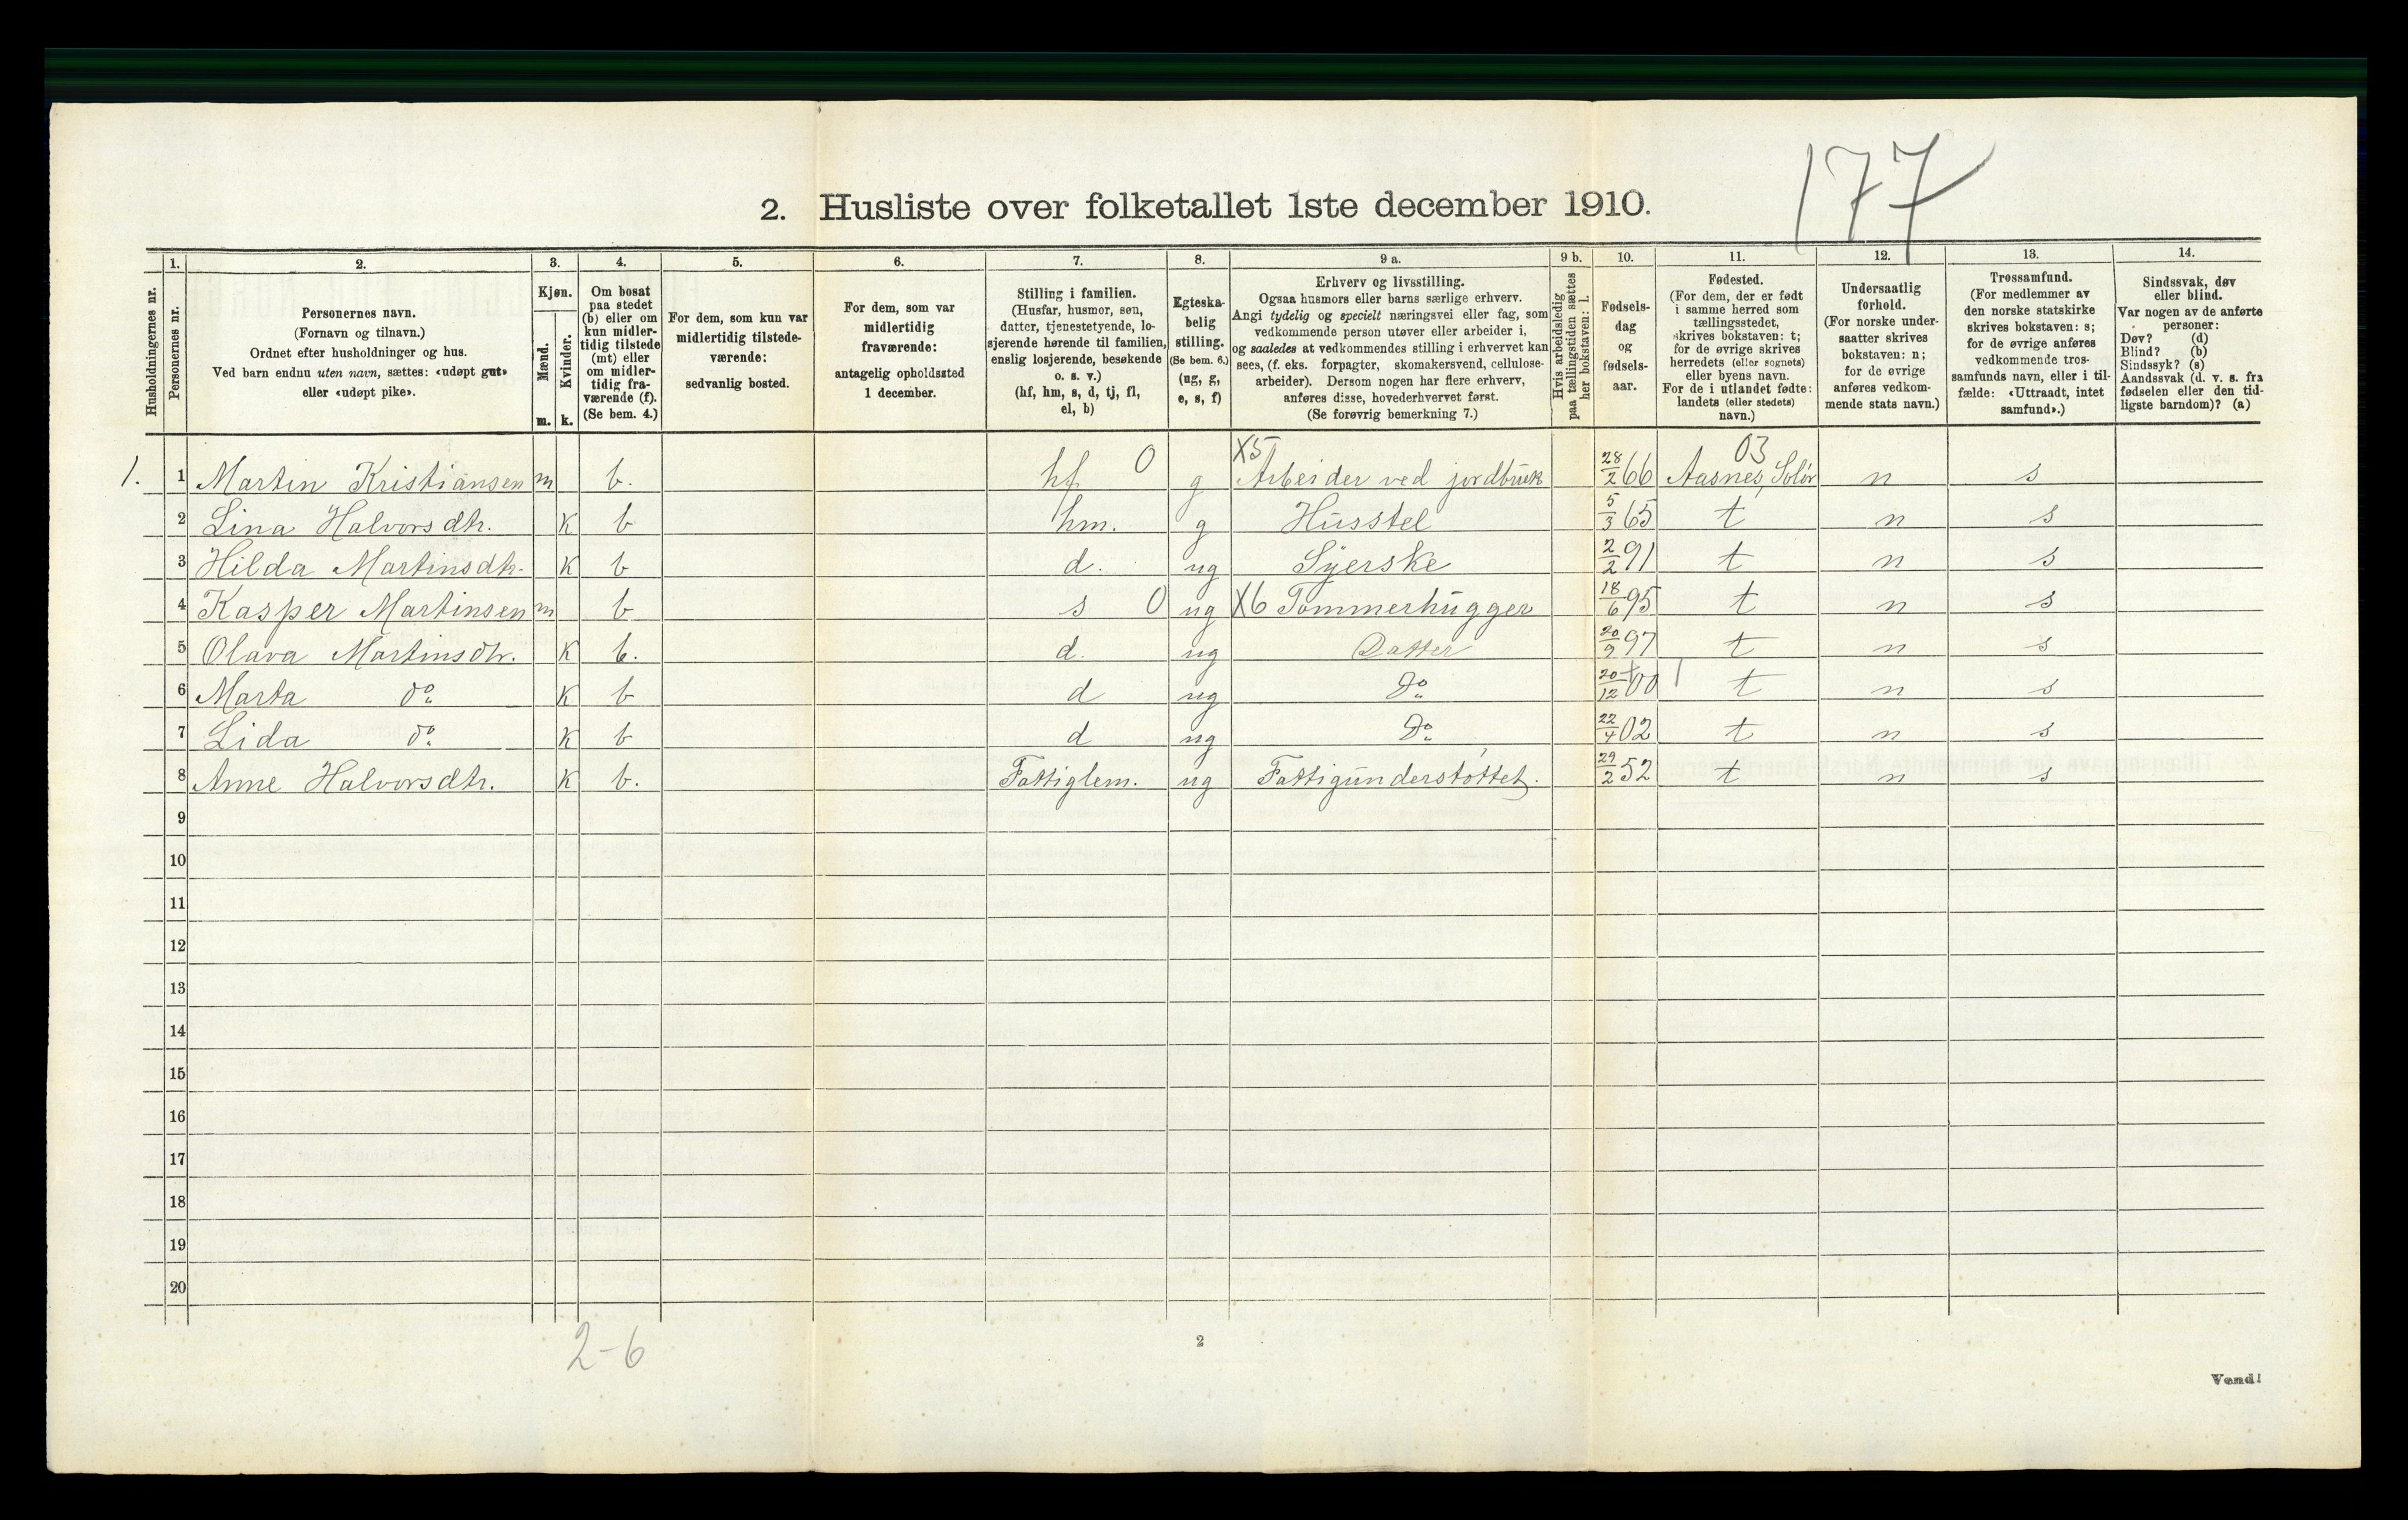 177
2. Husliste over folketallet 1ste december 1910.
Husholdningernes nr.
1.
Personernes nr.
2.
Personernes navn.
(Fornavn og tilnavn.)
Ordnet efter husholdninger og hus.
Ved barn endnu uten navn, sættes: «udøpt gut»
eller «udøpt pike».
3.
Kjøn.
Mænd.
Kvinder.
m. k.
4.
Om bosat
paa stedet
(b) eller om
kun midler-
tidig tilstede
(mt) eller
om midler-
tidig fra-
værende (f).
(Se bem. 4.)
5.
For dem, som kun var
midlertidig tilstede-
værende:
sedvanlig bosted.
6.
For dem, som var
midlertidig
fraværende:
antagelig opholdssted
1 december.
7.
Stilling i familien.
(Husfar, husmor, søn,
datter, tjenestetyende, lo-
sjerende hørende til familien,
enslig losjerende, besøkende
o. s. v.)
(hf, hm, s, d, tj, fl,
el, b)
8.
Egteska-
belig
stilling.
(Se bem. 6.)
(ug, g,
e, s, f)
9 a.
Erhverv og livsstilling.
Ogsaa husmors eller barns særlige erhverv.
Angi tydelig og specielt næringsvei eller fag, som
vedkommende person utøver eller arbeider i,
og saaledes at vedkommendes stilling i erhvervet kan
sees, (f. eks. forpagter, skomakersvend, cellulose-
arbeider). Dersom nogen har flere erhverv,
anføres disse, hovederhvervet først.
(Se forøvrig bemerkning 7.)
9 b.
Hvis arbeidsledig
paa tællingstiden sættes
her bokstaven: l.
10.
Fødsels-
dag
og
fødsels-
aar.
11.
Fødested.
(For dem, der er født
i samme herred som
tællingsstedet,
skrives bokstaven: t;
for de øvrige skrives
herredets (eller sognets)
eller byens navn.
For de i utlandet fødte:
landets (eller stedets)
navn.)
12.
Undersaatlig
forhold.
(For norske under-
saatter skrives
bokstaven: n;
for de øvrige
anføres vedkom-
mende stats navn.)
13.
Trossamfund.
(For medlemmer av
den norske statskirke
skrives bokstaven: s;
for de øvrige anføres
vedkommende tros-
samfunds navn, eller i til-
fælde: «Uttraadt, intet
samfund».)
14.
Sindssvak, døv
eller blind.
Var nogen av de anførte
personer:
Døv? (d)
Blind? (b)
Sindssyk? (s)
Aandssvak (d. v. s. fra
fødselen eller den tid-
ligste barndom)? (a)
X5 03
1. 1 Martin Kristiansen m b. hf 0 g Arbeider ved jordbruk 28/2 66 Aasnes, Solør n s
2 Lina Halvorsdtr. K b hm. g Husstel 5/3 65 t n s
3 Hilda Martinsdtr. K b d. ug Syerske 2/2 91 t n s
4 Kasper Martinsen m b s 0 ug X6 Tømmerhugger 18/6 95 t n s
5 Olava Martinsdtr. K b. d. ug Datter 20/9 97 t n s
6 Marta do K b d ug Do 20/12 00 t n s
7 Lida do K b d ug Do 22/4 02 t n s
8 Anne Halvorsdtr. K b. Fattiglem. ug Fattigunderstøttet. 29/2 52 t n s
9
10
11
12
13
14
15
16
17
18
19
20
2-6
2
Vend!